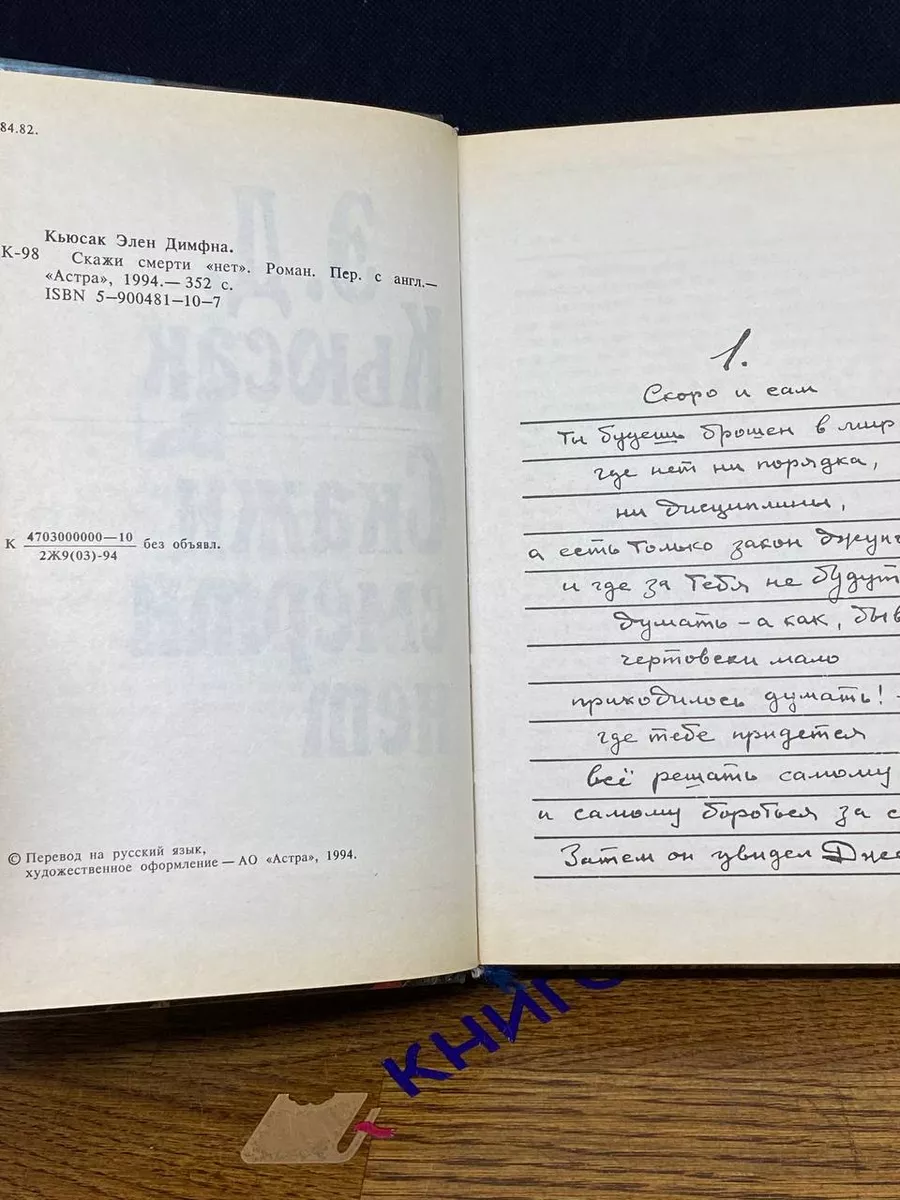 84.82.
Кьюсак Элен Димфна.
К-98 Скажи смерти «нет». Роман. Пер. с англ.—
«Астра», 1994.— 352 с.
ISBN 5—900481—10—7
К 4703000000—10 без объявл.
2Ж9(03)-94
© Перевод на русский язык,
художественное оформление — АО «Астра», 1994.
1.
Скоро и сам
ты будешь брошен в мир
где нет ни порядка,
ни дисциплины,
а есть только закон джунг
и где за тебя не будут
думать – а как, быв
чертовски мало
приходилось думать! –
где тебе придется
всё решать самому
и самому бороться за с
Затем он увидел Дже
Э.Д
Кьюсак
Скажи
смерти
нет
книго